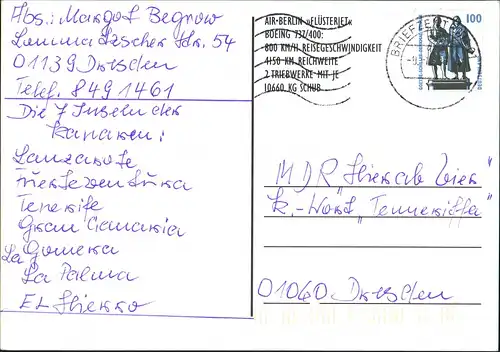 Abs.: Margot Begrow
Lommatzscher Str. 54
01139 Dresden
Telef. 8491461
Die 7 Inseln der
Kanaren:
Lanzarote
Fuerteventura
Teneriffe
Gran Canaria
La Gomera
La Palma
El Hierro
AIR-BERLIN »FLÜSTERJET«
BOEING 737/400:
800 KM/H REISEGESCHWINDIGKEIT
4150 KM REICHWEITE
2 TRIEBWERKE MIT JE
10660 KG SCHUB
BRIEFZENTRUM
100
MDR "Hier ab Vier"
K.-Wort "Tenneriffa"
01060 Dresden